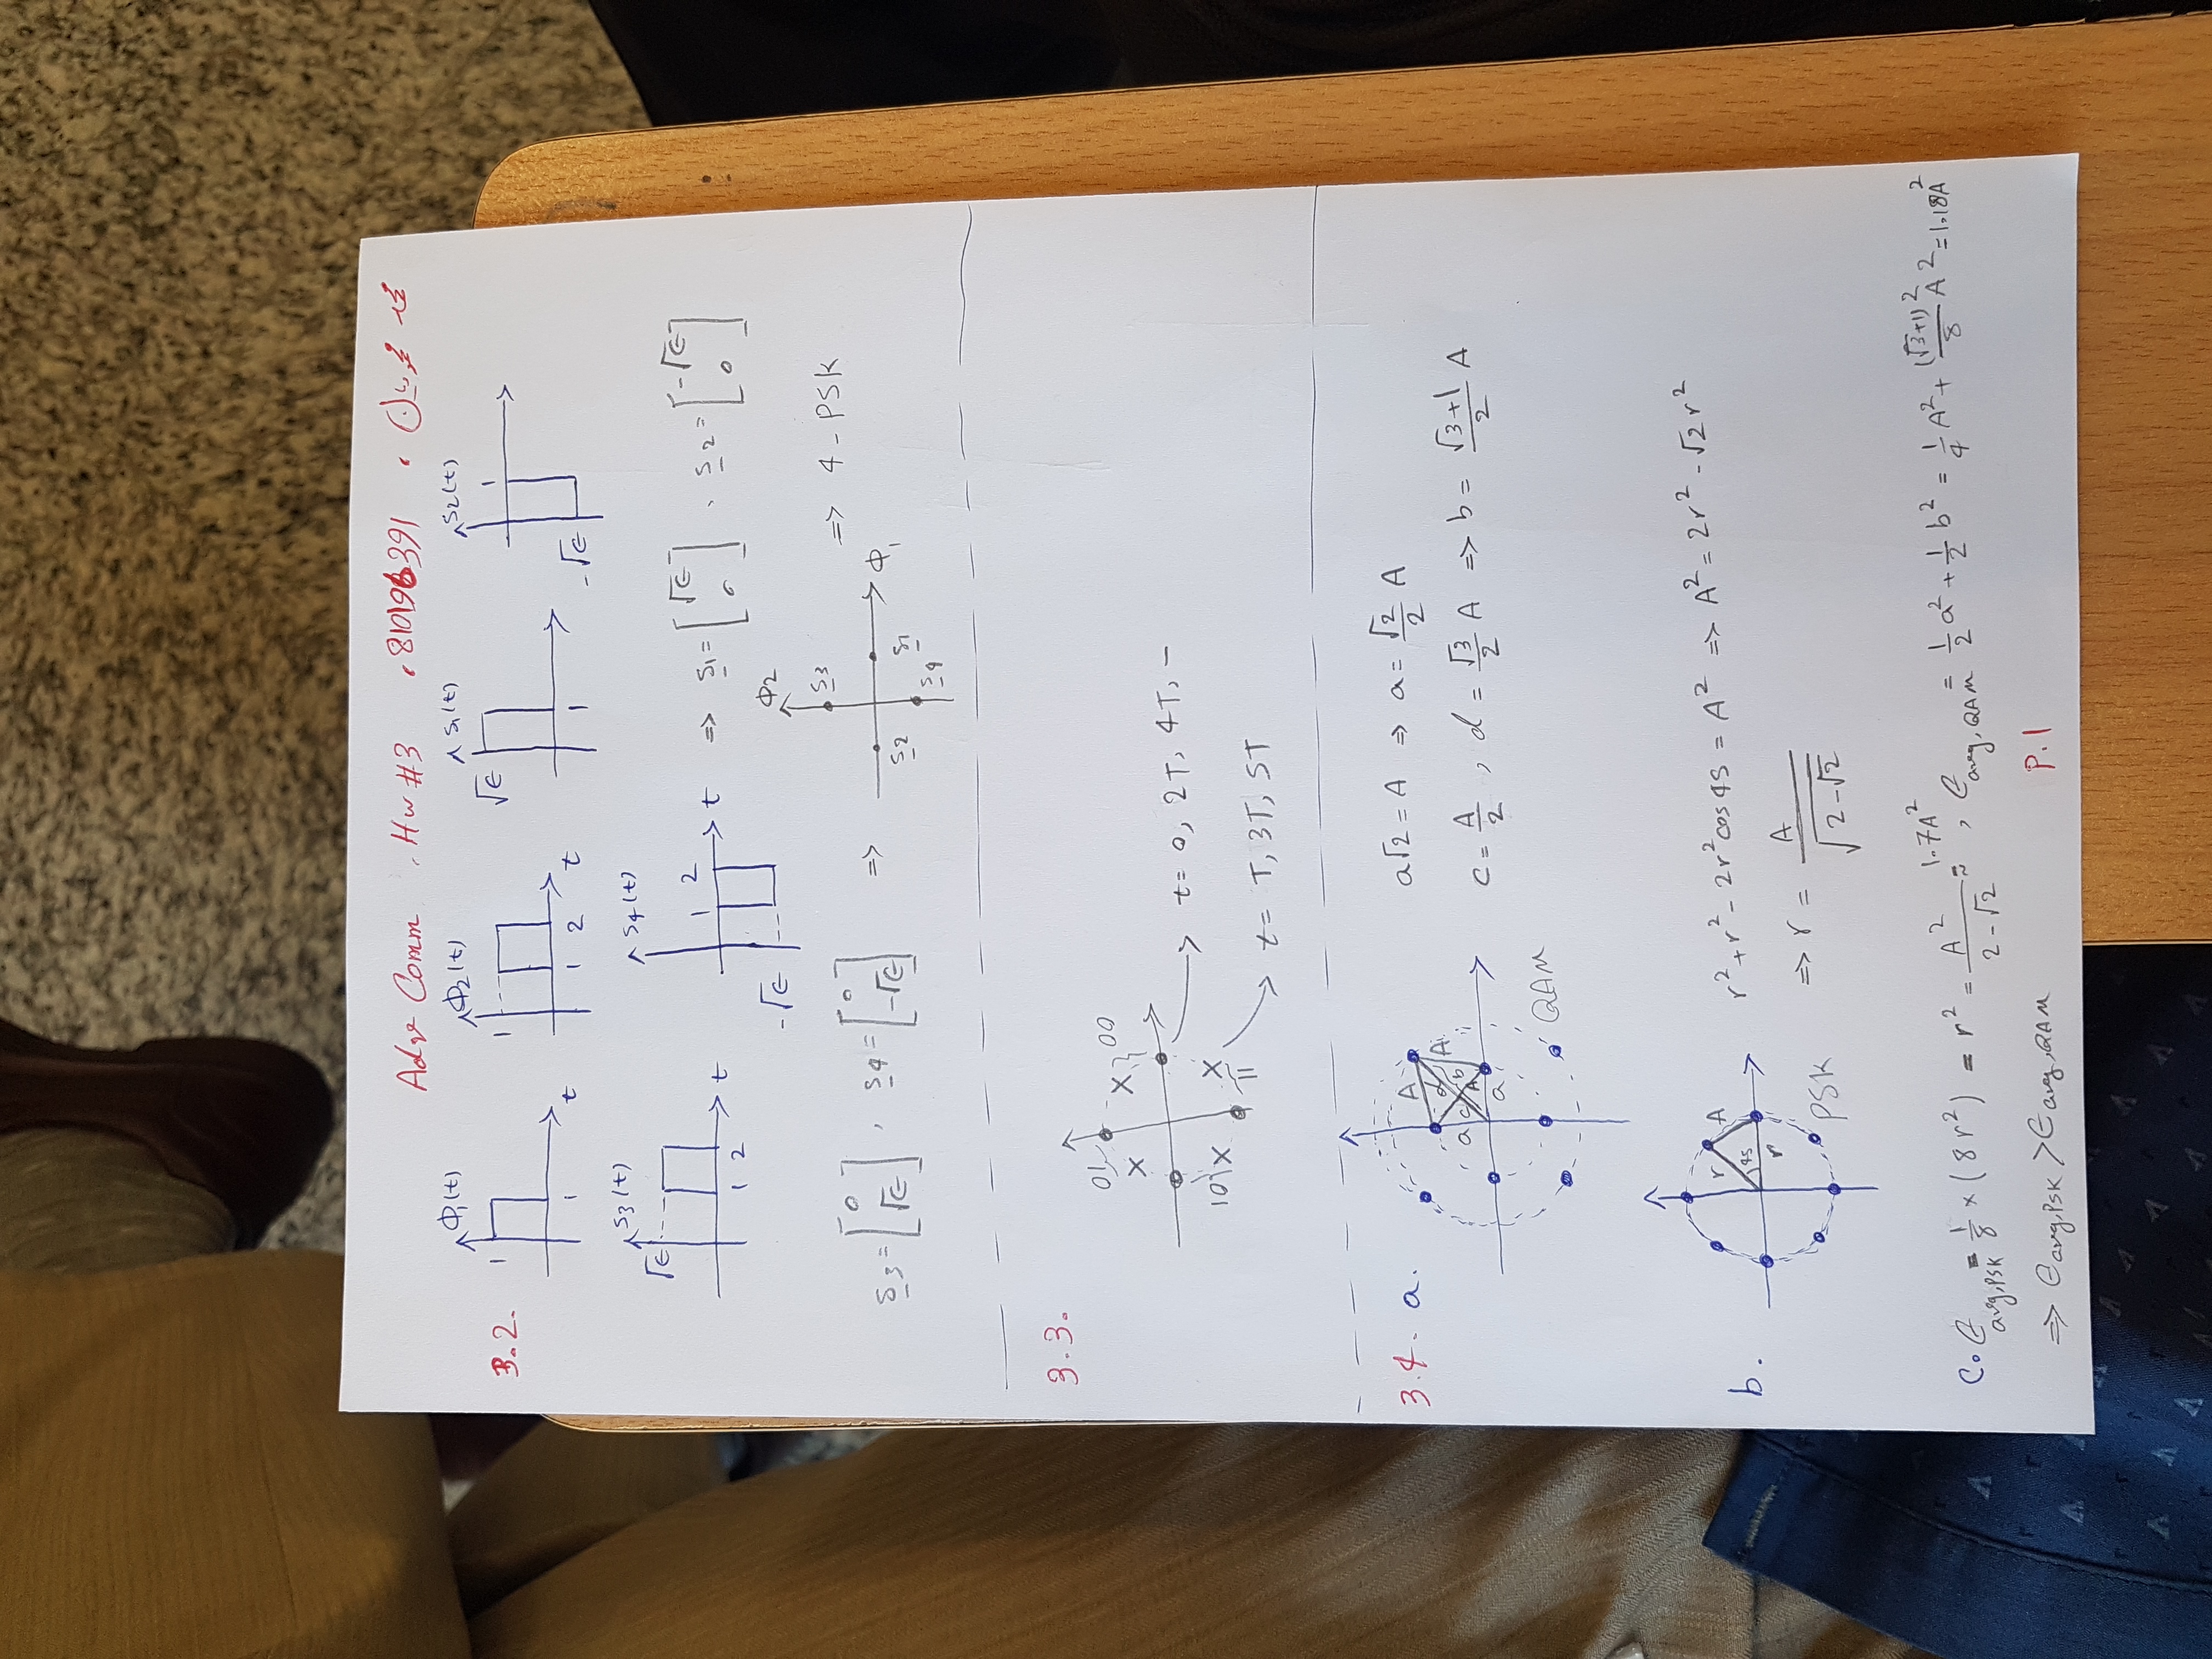 Adv Comm , Hw #3 ، 810196391 ، محمد
3.2. Φ₁(t) 1 1 t Φ₂(t) 1 1 2 t s₁(t) √ϵ 1 s₂(t) 1 -√ϵ
s₃(t) √ϵ 1 2 t s₄(t) 1 2 t -√ϵ ⇒ s₁ = [√ϵ 0] , s₂ = [-√ϵ 0]
s₃ = [0 √ϵ] , s₄ = [0 -√ϵ] ⇒ Φ₂ s₃ s₂ s₁ Φ₁ s₄ ⇒ 4-PSK
3.3.
01 x x 00
t = 0, 2T, 4T, -
10 x x 11
t = T, 3T, 5T
3.4. a. A d A a c b A a QAM
a√2 = A ⇒ a = √2/2 A
c = A/2 , d = √3/2 A ⇒ b = (√3+1)/2 A
b. r A 45 r PSK
r² + r² - 2r² cos 45 = A² ⇒ A² = 2r² - √2 r²
⇒ r = A/√(2-√2)
c. ϵavg,PSK = 1/8 × (8r²) = r² = A²/(2-√2) ≈ 1.7A² , ϵavg,QAM = 1/2 a² + 1/2 b² = 1/4 A² + (√3+1)²/8 A² = 1.18A²
⇒ ϵavg,PSK > ϵavg,QAM
P.1